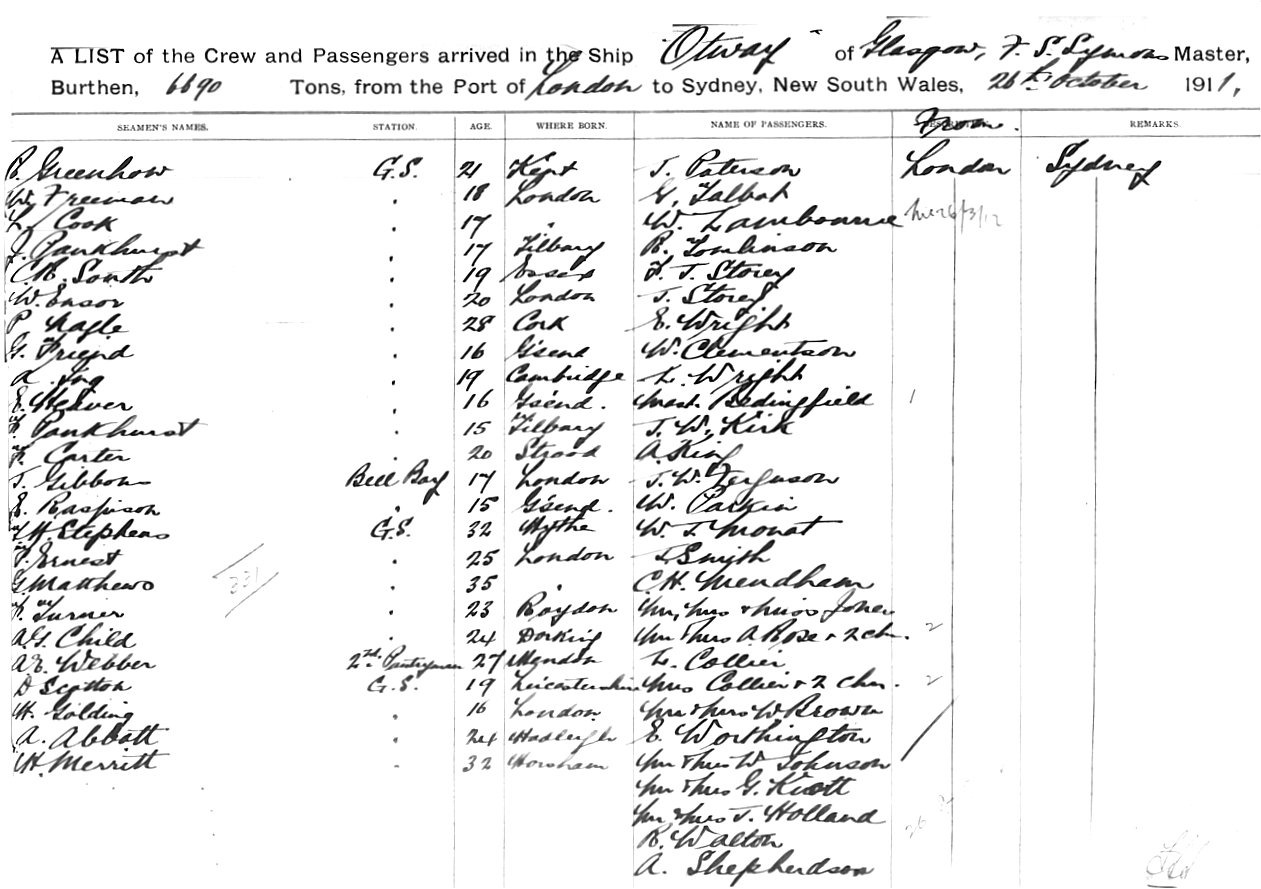 A LIST of the Crew and Passengers arrived in the Ship "Otway" of Glasgow, F. S. Symons Master,
Burthen, 6690 Tons, from the Port of London to Sydney, New South Wales, 26th October 1911,
SEAMEN'S NAMES. STATION. AGE. WHERE BORN. NAME OF PASSENGERS. From. REMARKS
Greenhow G.S. 21 Kent J. Paterson London Sydney
W. Freeman 18 London G. Talbot
Cook 17 " W. Lambourne
J. Pankhurst 17 Tilbury R. Tomlinson
South 19 Essex F. J. Storey
W. Ensor 20 London J. Storey
P. Nagle 28 Cork E. Wright
G. Friend 16 G'send W. Clementson
19 Cambridge L. Wright
E. Weaver 16 G'send. Mast. Bedingfield 1
Pankhurst 15 Tilbury J. W. Kirk
Carter 20 Strood A King
J. Gibbons Bell Boy 17 London J. W. Ferguson
E. Raspison 15 G'send. W. Parkin
W. Stephens G.S. 32 Hythe W. J. Monat
Ernest 25 London Smyth
G Matthews 35 " C. H. Mendham
Turner 23 Roydon Mr, Mrs & Miss Jones
A.G. Child 24 Dorking Mr & Mrs A Rose & 2 chn. 2
A.E. Webber 2nd Pantryman 27 Mendon L. Collier
D Scotton G.S. 19 Leicestershire Mrs Collier & 2 chn. 2
H. Golding 16 London Mr & Mrs W Brown
A. Abbott 24 Hadleigh E. Worthington
H. Merritt 32 Horsham Mr & Mrs W. Johnson
Mr & Mrs G. Knott
Mr & Mrs J. Holland
R. Walton 26
A. Shepherdson